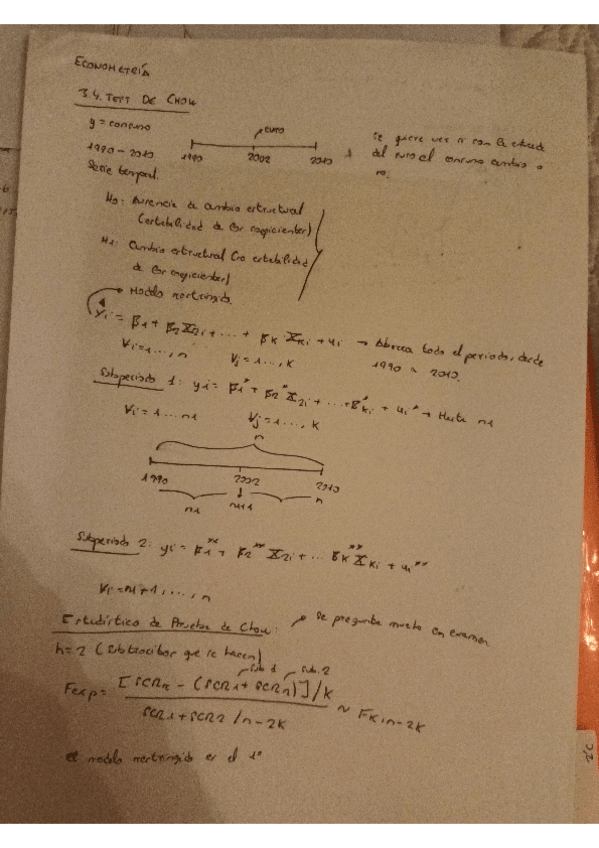 ECONOMETRÍA
3.4. TEST DE CHOW
y = consumo
1990 – 2010
Serie temporal.
euro
1990 2002 2010
Se quiere ver si con la entrada
del euro el consumo cambia o
no.
H0: Ausencia de cambio estructural
(estabilidad de los coeficientes)
H1: Cambio estructural (no estabilidad
de los coeficientes)
Modelo restringido.
yi = β1 + β2 X2i + ... + βK XKi + ui → Abarca todo el periodo, desde
1990 a 2010.
∀i = 1 ..., n ∀j = 1 ..., K
Subperiodo 1: yi = β1* + β2* X2i + ... + β*Ki + ui* → Hasta n1
∀i = 1 ... n1 ∀j = 1 ..., K
n
1990 2002 2010
n1 n1+1 n
Subperiodo 2: yi = β1** + β2** X2i + ... βK** XKi + ui**
∀i = n1+1, ..., n
Estadístico de Prueba de Chow: → Se pregunta mucho en examen
h = 2 (subtrocitos que se hacen)
sub 1 sub. 2
Fexp = [SCRR - (SCR1 + SCR2)]/K
SCR1 + SCR2 / n-2K
~ FK, n-2K
el modelo restringido es el 1º